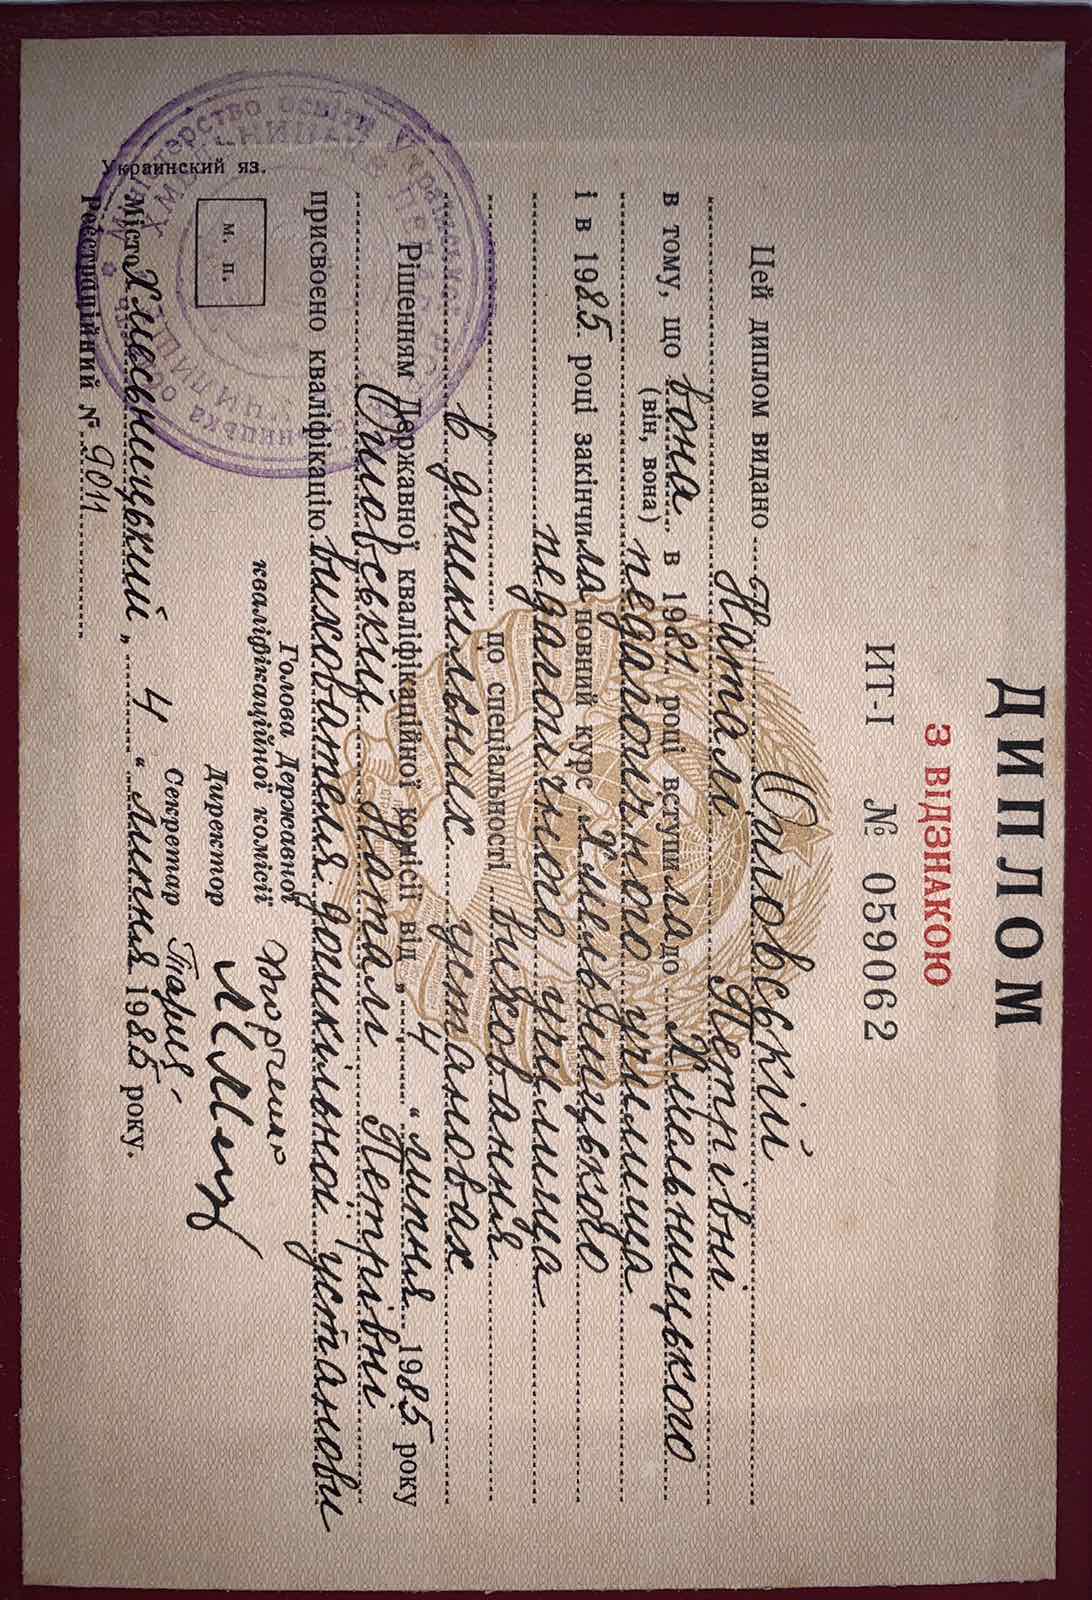 ДИПЛОМ
З ВІДЗНАКОЮ
ИТ-I № 059062
Цей диплом видано Оиловській
Наталі Петрівні
в тому, що вона в 1981 році вступила до Хмельницького
(він, вона)
педагогічного училища
і в 1985 році закінчила повний курс Хмельницького
педагогічного училища
по спеціальності виховання
в дошкільних установах
Рішенням Державної кваліфікаційної комісії від „ 4 “ липня 1985 року
Оиловській Наталі Петрівні
присвоєно кваліфікацію вихователя дошкільної установи
Голова Державної
кваліфікаційної комісії
Директор
Секретар
м. п.
Украинский яз.
місто Хмельницький „ 4 “ липня 1985 року.
Реєстраційний № 9011
Міністерство освіти Української